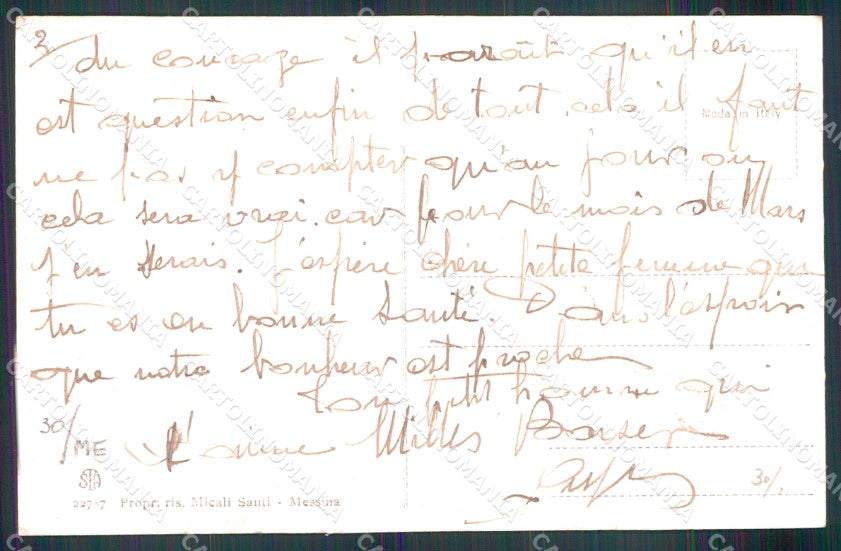 3/ du courage il paraît qu'il en
est question enfin de tout cela il faut
Made in Italy
ne pas y compter qu'au jour ou
cela sera vrai. car pour le mois de Mars
j'en serais. J'espère chère petite femme que
tu es en bonne santé. Dans l'espoir
que notre bonheur est proche
Ton petit homme qui
t'aime Milles Baisers
30/ ME
30/.
22787 Propr. ris. Micali Santi - Messina
CARTOLINOMANIA